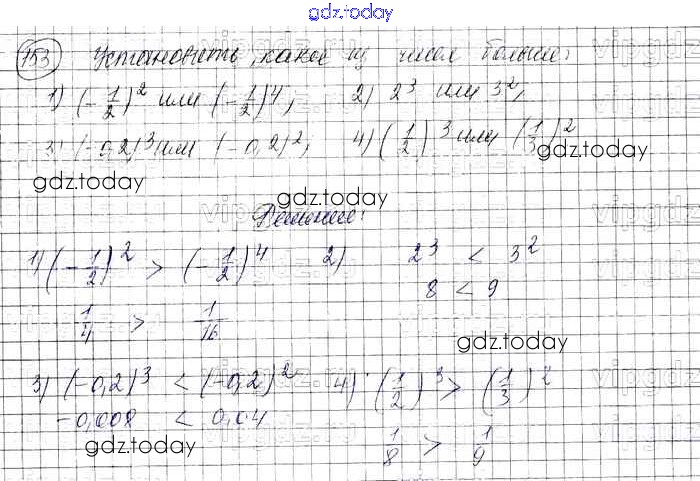 gdz.today
153 Установить, какое из чисел больше:
1) (-1/2)^2 или (-1/2)^4; 2) 2^3 или 3^2;
3) (-0,2)^3 или (-0,2)^2; 4) (1/2)^3 или (1/3)^2
gdz.today
gdz.today
gdz.today
Решение:
1) (-1/2)^2 > (-1/2)^4 2) 2^3 < 3^2
8 < 9
1/4 > 1/16
gdz.today
3) (-0,2)^3 < (-0,2)^2 4) (1/2)^3 > (1/3)^2
-0,008 < 0,04
1/8 > 1/9
gdz.today